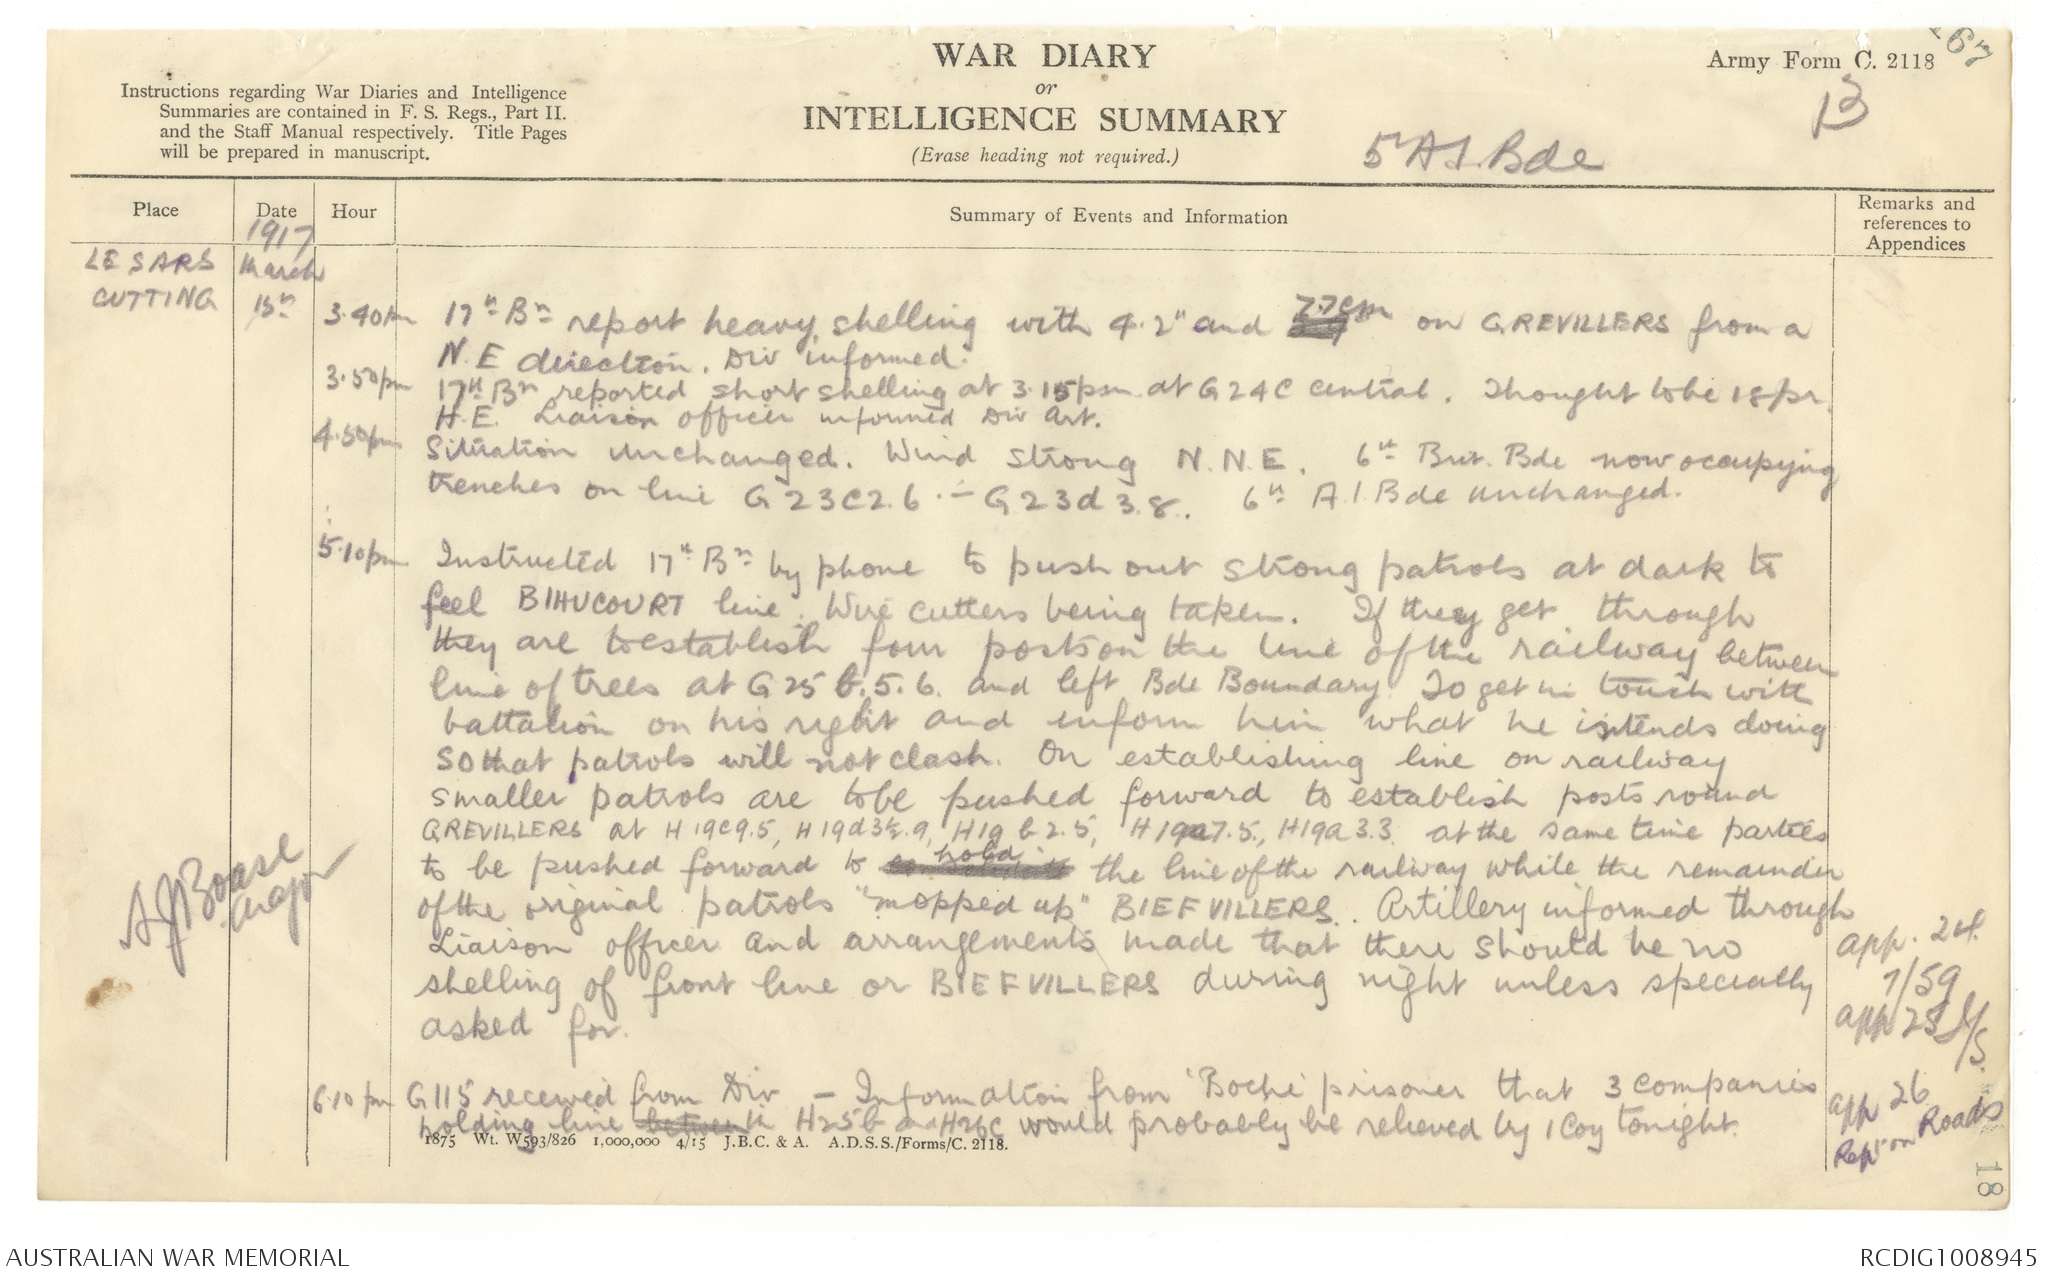 WAR DIARY
or
INTELLIGENCE SUMMARY
(Erase heading not required.)
Army Form C. 2118
Instructions regarding War Diaries and Intelligence
Summaries are contained in F. S. Regs., Part II.
and the Staff Manual respectively. Title Pages
will be prepared in manuscript.
13
5th A.I. Bde
Place
Date
Hour
Summary of Events and Information
Remarks and
references to
Appendices
1917
LE SARS
CUTTING
March
13th
3.40pm 17th Bn report heavy shelling with 4.2" and 7.7cm on GREVILLERS from a
N.E direction. Div informed.
3.50pm 17th Bn reported short shelling at 3.15pm at G24C central. Thought to be 18pr.
H.E. Liaison officer informed Div Art.
4.50pm Situation unchanged. Wind strong N.N.E. 6th Brit. Bde now occupying
trenches on line G23C2.6. – G23d3.8. 6th A.I.Bde unchanged.
5.10pm Instructed 17th Bn by phone to push out strong patrols at dark to
feel BIHUCOURT line. Wire cutters being taken. If they get through
they are to establish four posts on the line of the railway between
line of trees at G25b.5.6. and left Bde Boundary. To get in touch with
battalion on his right and inform him what he intends doing
so that patrols will not clash. On establishing line on railway
smaller patrols are to be pushed forward to establish posts round
GREVILLERS at H19C9.5, H19d3½.9, H19b2.5, H19a7.5, H19a3.3. at the same time parties
to be pushed forward to hold the line of the railway while the remainder
of the original patrols "mopped up" BIEFVILLERS. Artillery informed through
Liaison officer and arrangements made that there should be no
shelling of front line or BIEFVILLERS during night unless specially
asked for.
6.10pm G115 received from Div – Information from 'Boche' prisoner that 3 companies
holding line in H25b and H26C would probably be relieved by 1 Coy tonight.
A J Boase
Major
app. 24.
1/59
app 25
app 26
Rept on Roads
1875 Wt. W593/826 1,000,000 4/15 J.B.C. & A. A.D.S.S./Forms/C. 2118.
18
AUSTRALIAN WAR MEMORIAL
RCDIG1008945